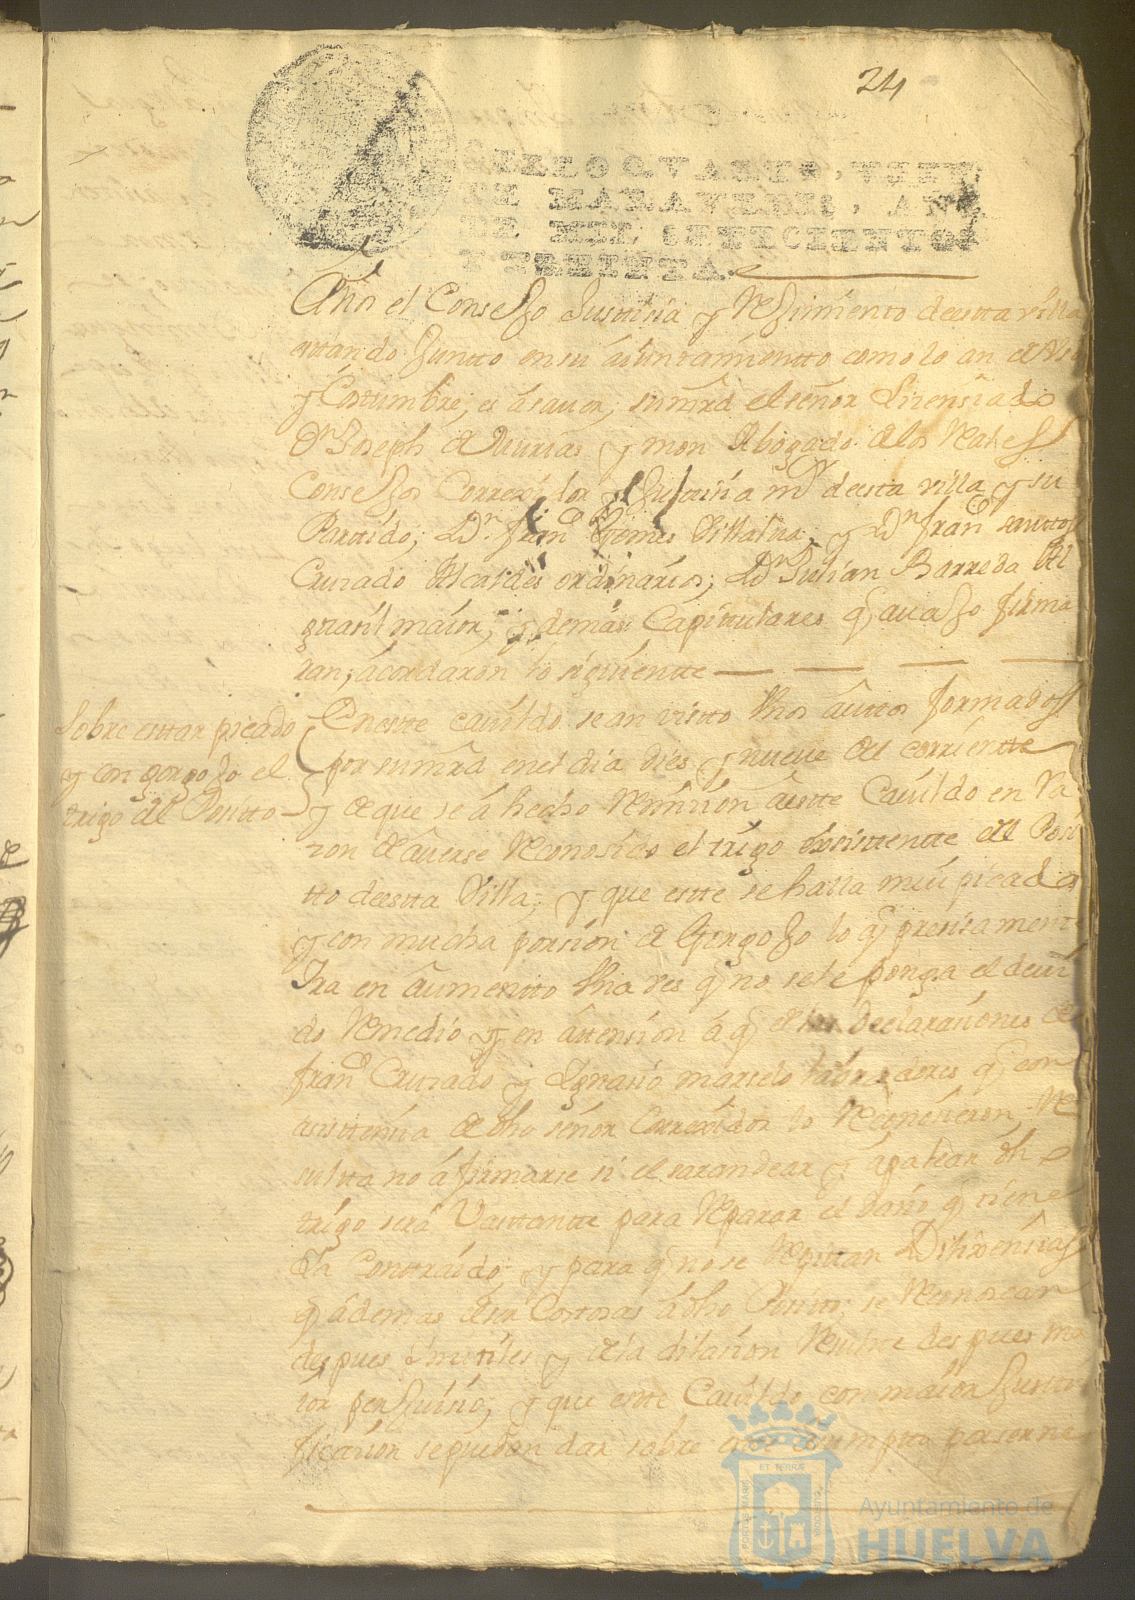 24
SELLO QVARTO, VEIN
TE MARAVEDIS, AÑO
DE MIL SETECIENTOS
Y TREINTA.
el Consejo Justicia y Reximiento de esta villa
estando Juntto en su aiuntamientto como lo an de Uso
y Costumbre, es a saver, su mrd el señor Lizensiado
Dn Joseph de y mon Abogado de los Reales
Consejos Correxidor y Justicia mor de esta villa y su
Partido; Dn Franco Gomes Villalva, y Dn Franco santtos
Cruzado Alcaldes ordinarios; Dn Julian Barreda Al
guasil maior, y demas Capitulares q avajo firma
ran, acordaron lo siguiente
Sobre estar picado
y con gorgojo el
trigo del Positto
En este cavildo se an visto Unos auttos formados
por su mrd en el dia dies y nueve del corriente
y de que se á hecho Remision a este Cavildo en Ra
zon de averse Reconosido el trigo existente del Posi
tto de esta Villa; y que este se halla mui picado
y con mucha porsion de Gorgojo lo q presisament
Ira en aumentto Una ves q no se le ponga el devi
do Remedio y en attension á q de las Declaraciones de
Franco Cruzado y Ygnasio marselo labradores q con
asistensia de dho señor Correxidor lo Reconosieron, Re
sulta no afirmarse si el zarandear y apalear dho
trigo será Vastante para Reparar el daño q tiene
Contraido, y para q no se Repittan Dilixensias
q ademas de ser Costosas á dho Positto, se Reconoscan
despues Inutiles y de la dilasion Resulte despues ma
ior perjuisio; y que este Cavildo con maior Justi
ficasion se puedan dar sobre este asumptto
Ayuntamiento de
HUELVA